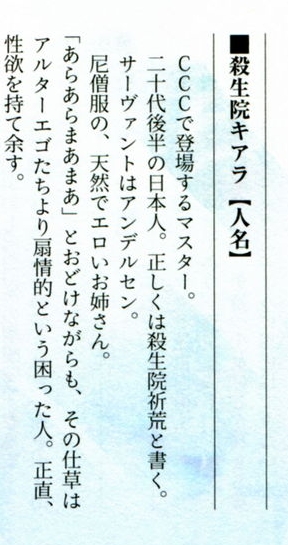 ■殺生院キアラ【人名】
CCCで登場するマスター。
二十代後半の日本人。正しくは殺生院祈荒と書く。
サーヴァントはアンデルセン。
尼僧服の、天然でエロいお姉さん。
「あらあらまあまあ」とおどけながらも、その仕草は
アルターエゴたちより扇情的という困った人。正直、
性欲を持て余す。